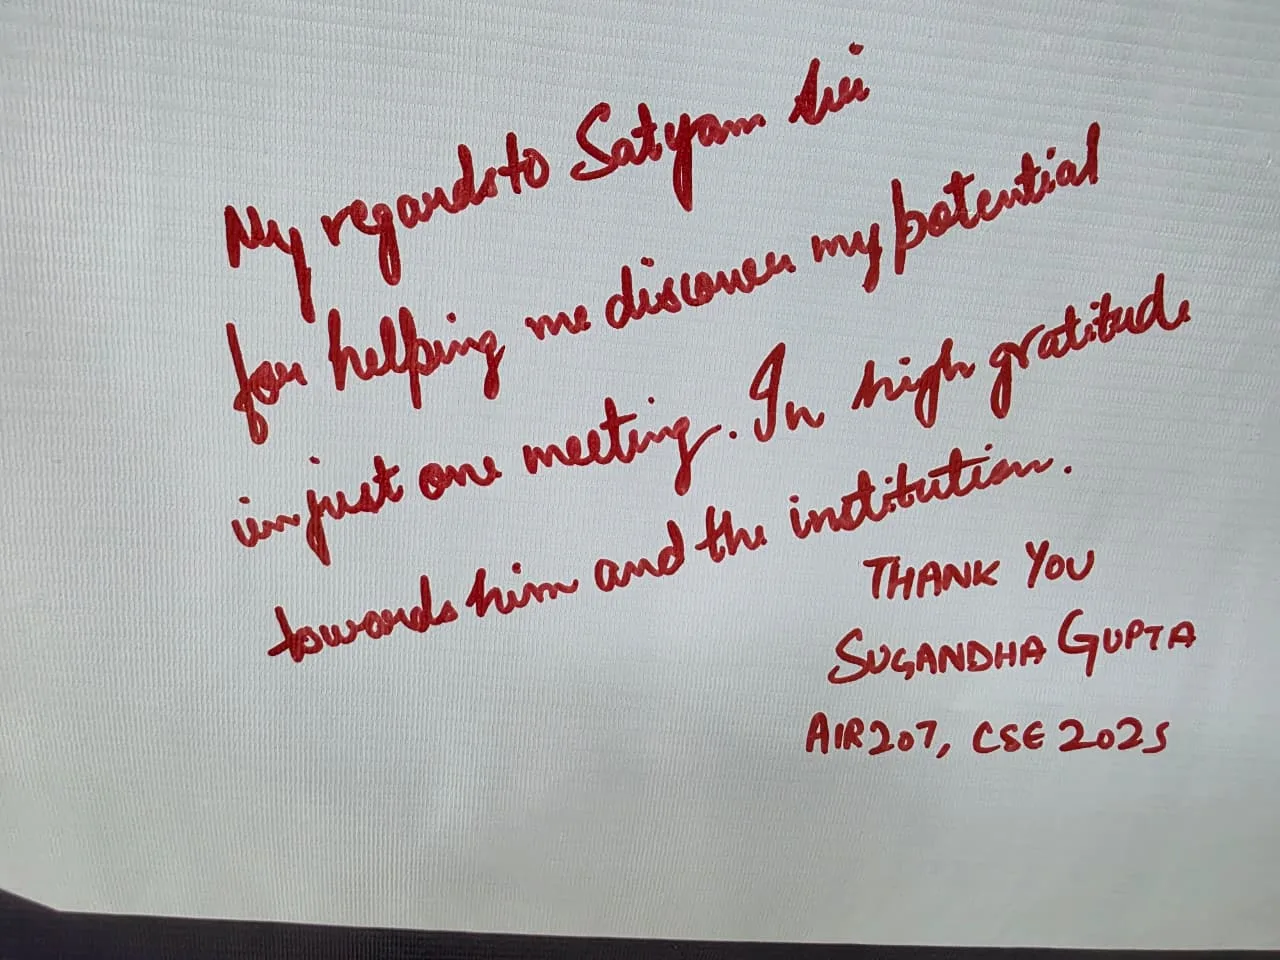 My regards to Satyam Sir
for helping me discover my potential
in just one meeting. In high gratitude
towards him and the institution.
THANK YOU
SUGANDHA GUPTA
AIR 207, CSE 2025